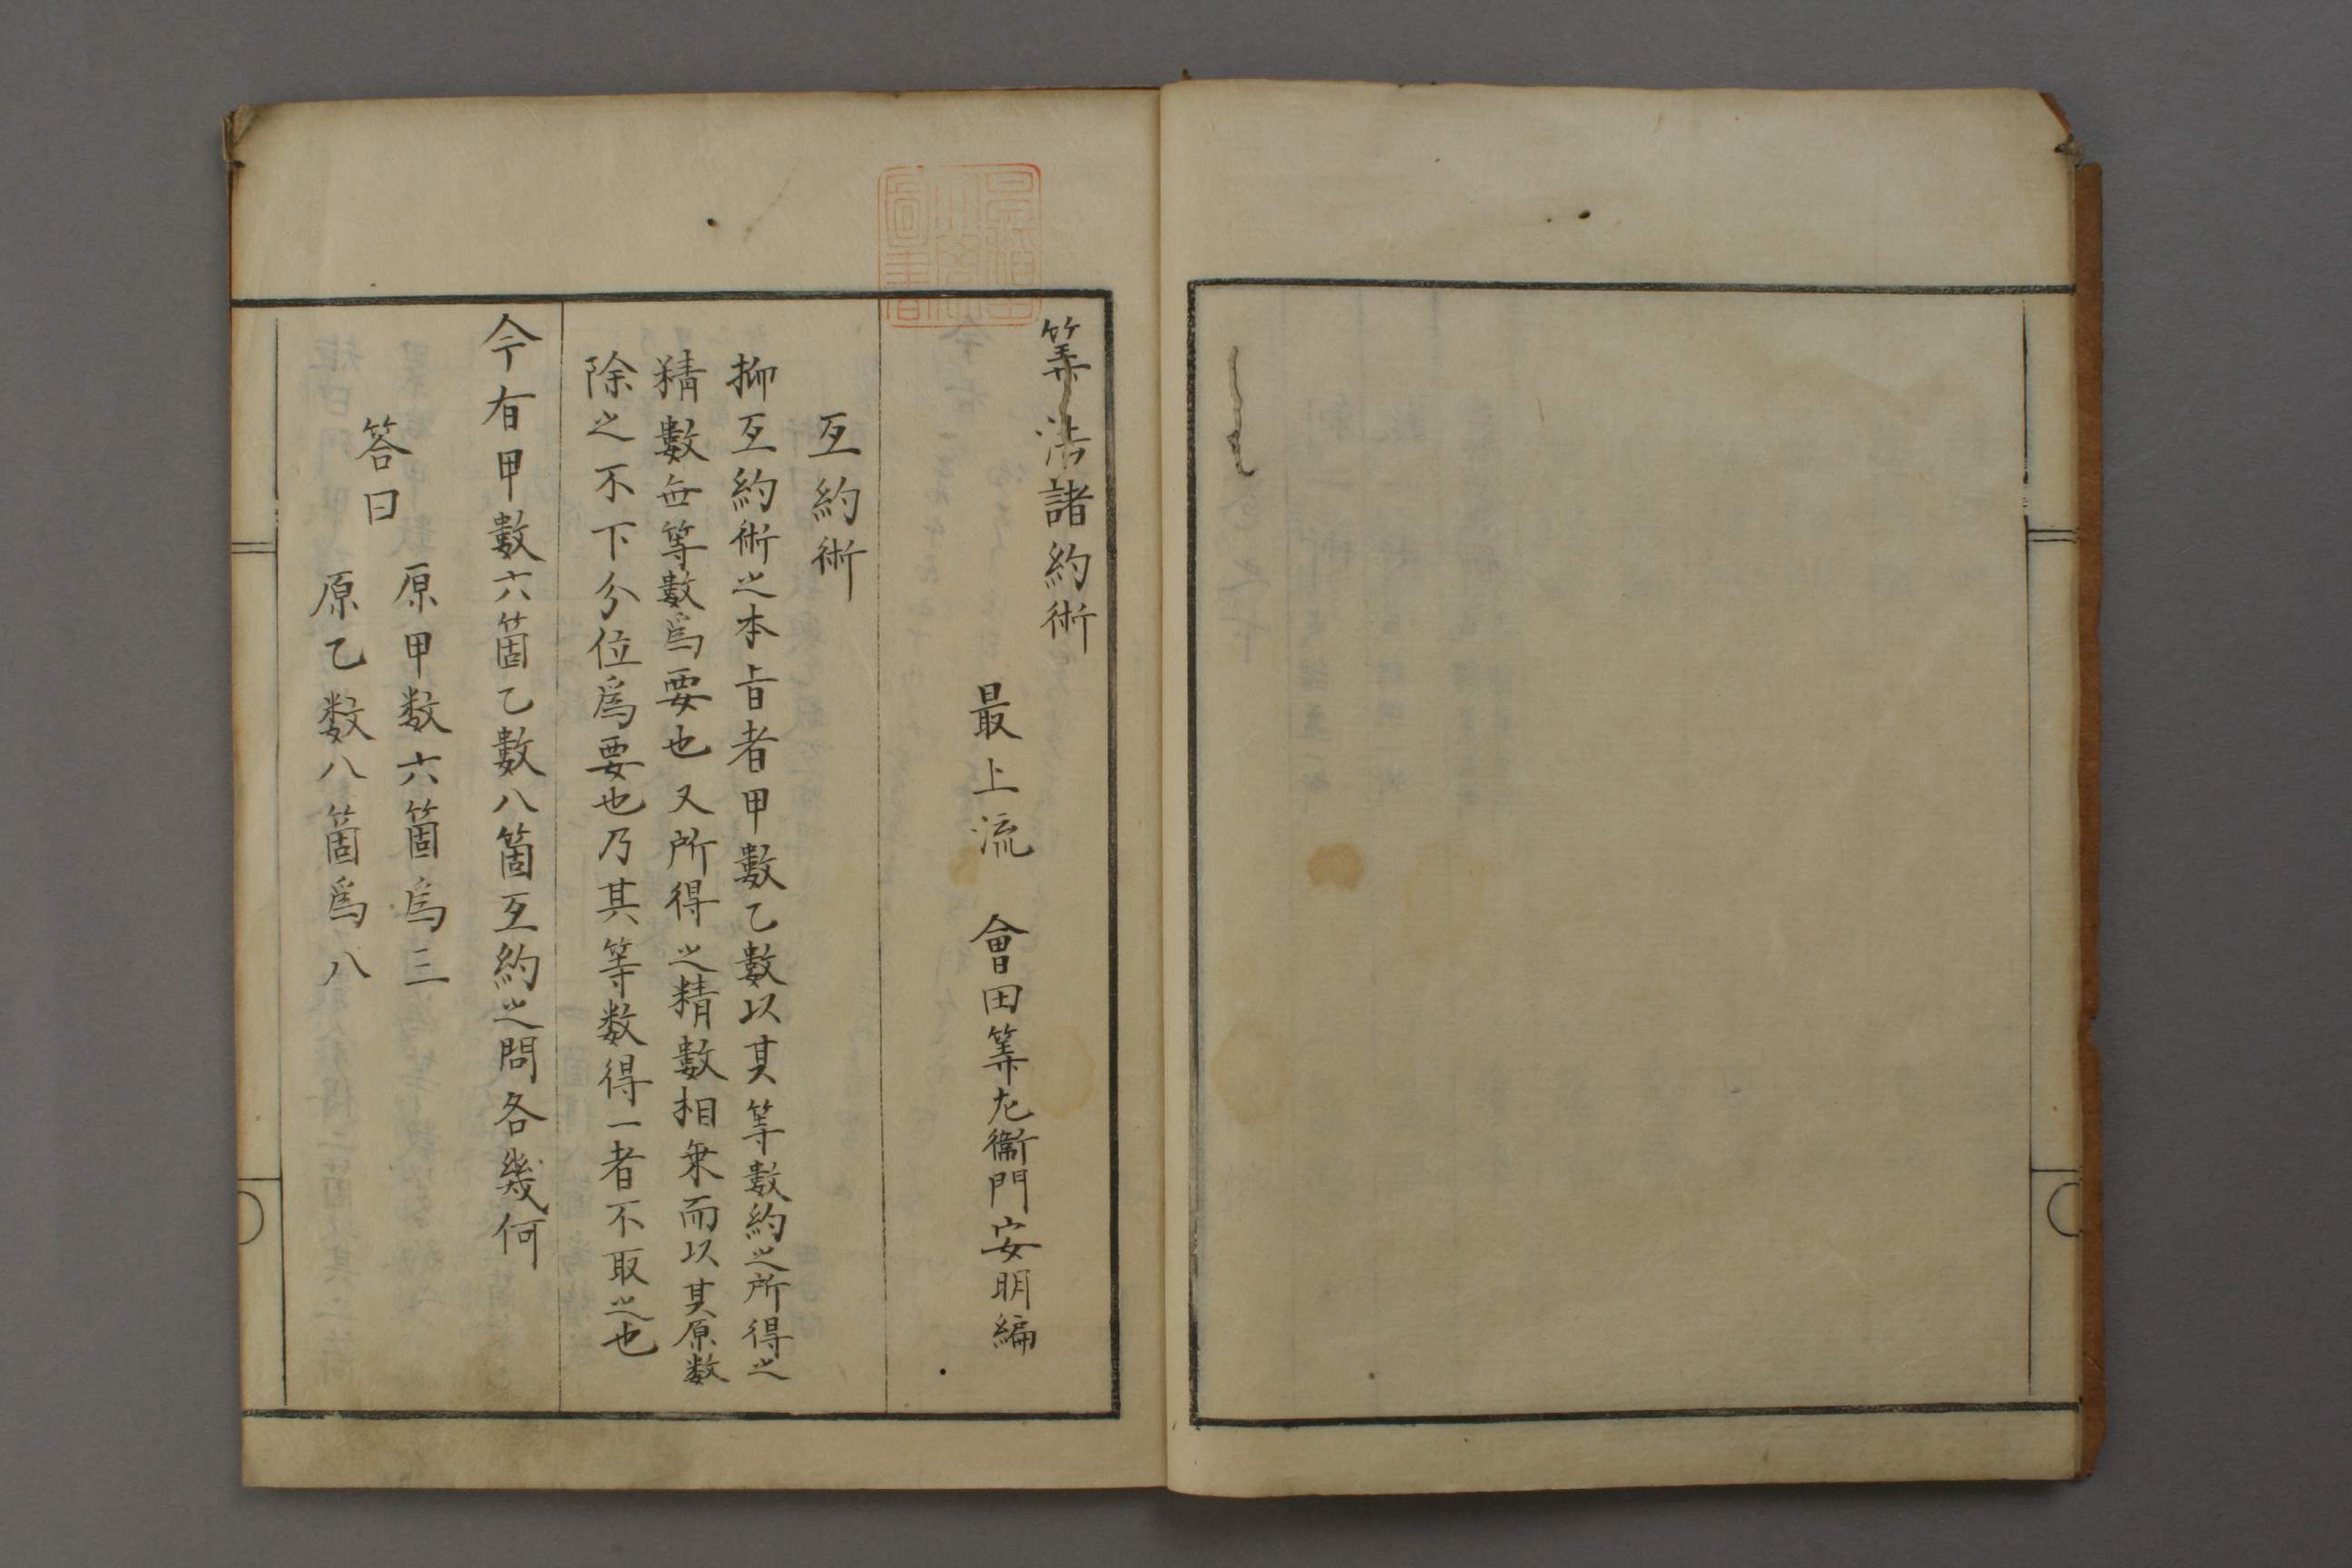 筭法諸約術
最上流　會田筭左衞門安明編
互約術
抑互約術之本旨者甲數乙數以其等數約之所得之
精數無等數爲要也又所得之精數相乗而以其原数
除之不下分位爲要也乃其等数得一者不取之也
今有甲數六箇乙數八箇互約之問各幾何
答曰
原甲数六箇爲三
原乙数八箇爲八